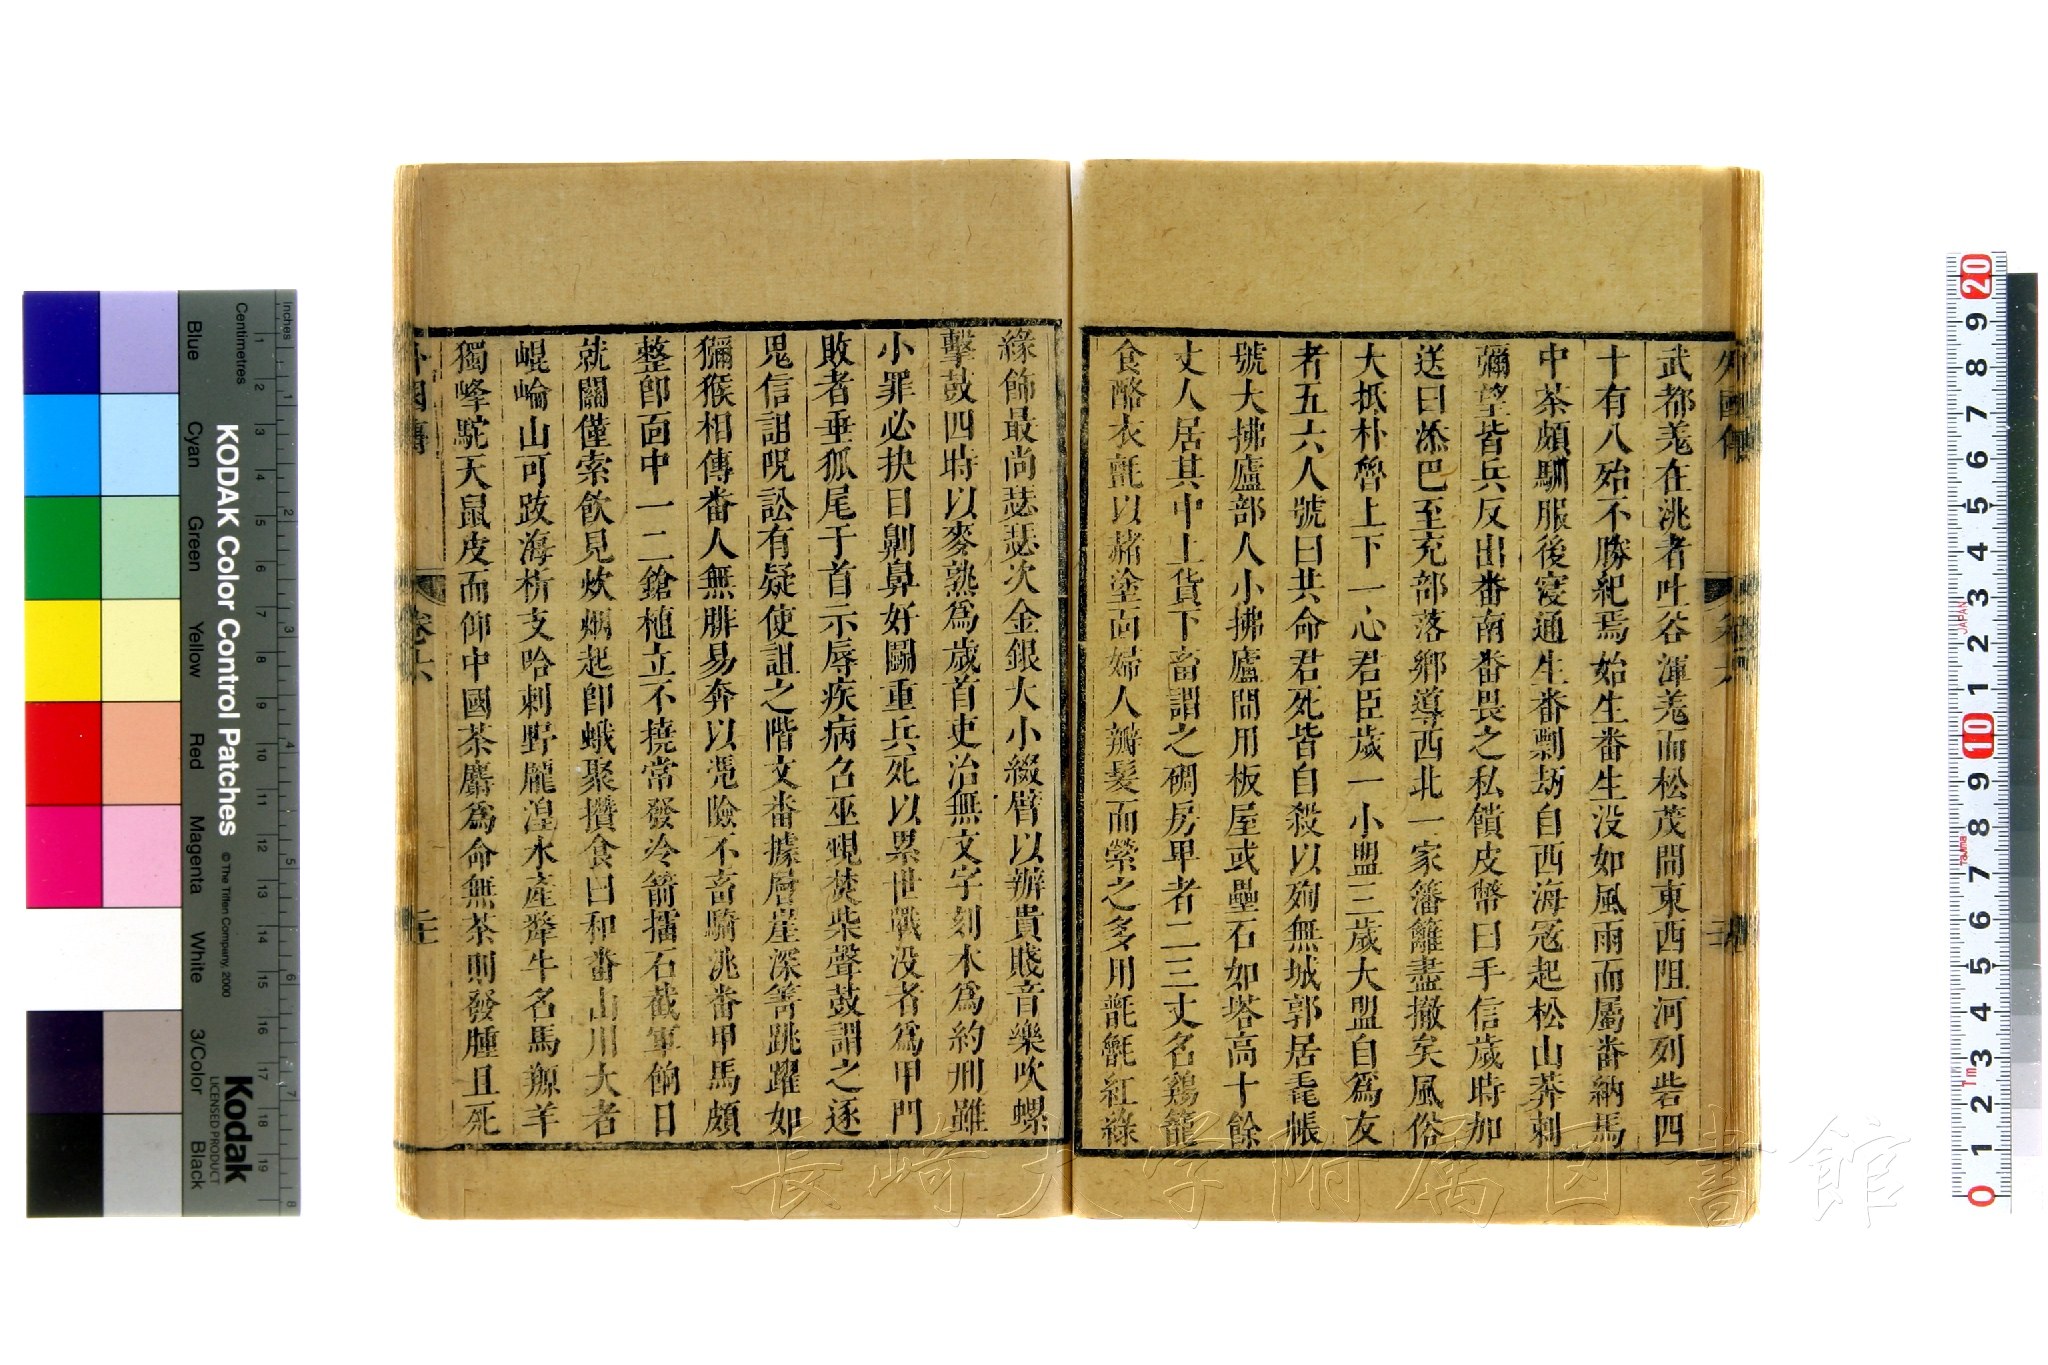 外國傳
武都羗在洮者吐谷渾羗而松茂間東西阻河列砦四
十有八殆不勝紀焉始生番生没如風雨而屬番納馬
中茶頗馴服後寖通生番剽刼自西海寇起松山莽剌
彌望皆兵反出番南番畏之私饋皮幣曰手信歲時加
送曰添巴至充部落鄉導西北一家籓籬盡撤矣風俗
大抵朴魯上下一心君臣歲一小盟三歲大盟自爲友
者五六人號曰共命君死皆自殺以殉無城郭居毳帳
號大拂廬部人小拂廬間用板屋或壘石如塔高十餘
丈人居其中上貨下畜謂之碉房畢者二三丈名鷄籠
食酪衣氈以赭塗面婦人辮髮而縈之多用毾㲪紅綠
緣飾最尚瑟瑟次金銀大小綴臂以辨貴賤音樂吹螺
擊鼓四時以麥熟爲歲首吏治無文字刻木爲約刑雖
小罪必抉目劓鼻好鬪重兵死以累世戰没者爲甲門
敗者垂狐尾于首示辱疾病召巫覡焚柴聲鼓謂之逐
鬼信詛呪訟有疑使詛之階文番據層崖深箐跳躍如
獼猴相傳番人無腓易奔以凭險不畜騎洮番甲馬頗
整卽面中一二鎗植立不撓常發冷箭擂石截軍餉日
就鬭僅索飲見炊烟起卽蛾聚攢食曰和番山川大者
崐崘山可跋海析支哈剌野龎湟水產犛牛名馬羱羊
獨峰駝天鼠皮而仰中國茶麝爲命無茶則發腫且死
卷六